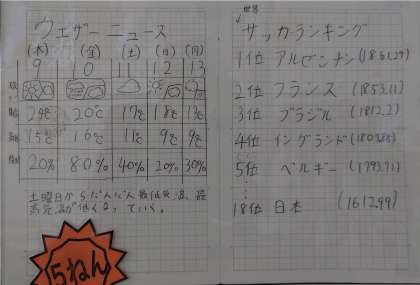 ウェザーニュース
(木) (金) (土) (日) (月)
9 10 11 12 13
24℃ 20℃ 17℃ 18℃ 13℃
15℃ 16℃ 11℃ 9℃ 9℃
20% 80% 40% 20% 30%
土曜日からだんだん最低気温、最
高気温が低くなっていく。
5ねん
世界
サッカランキング
1位 アルゼンチン(1861.29)
2位 フランス (1853.11)
3位 ブラジル (1812.2)
4位 イングランド
5位 ベルギー (1793.71)
18位 日本 (1612.99)